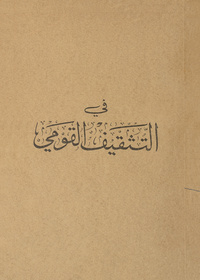 في
التثقيف القومي